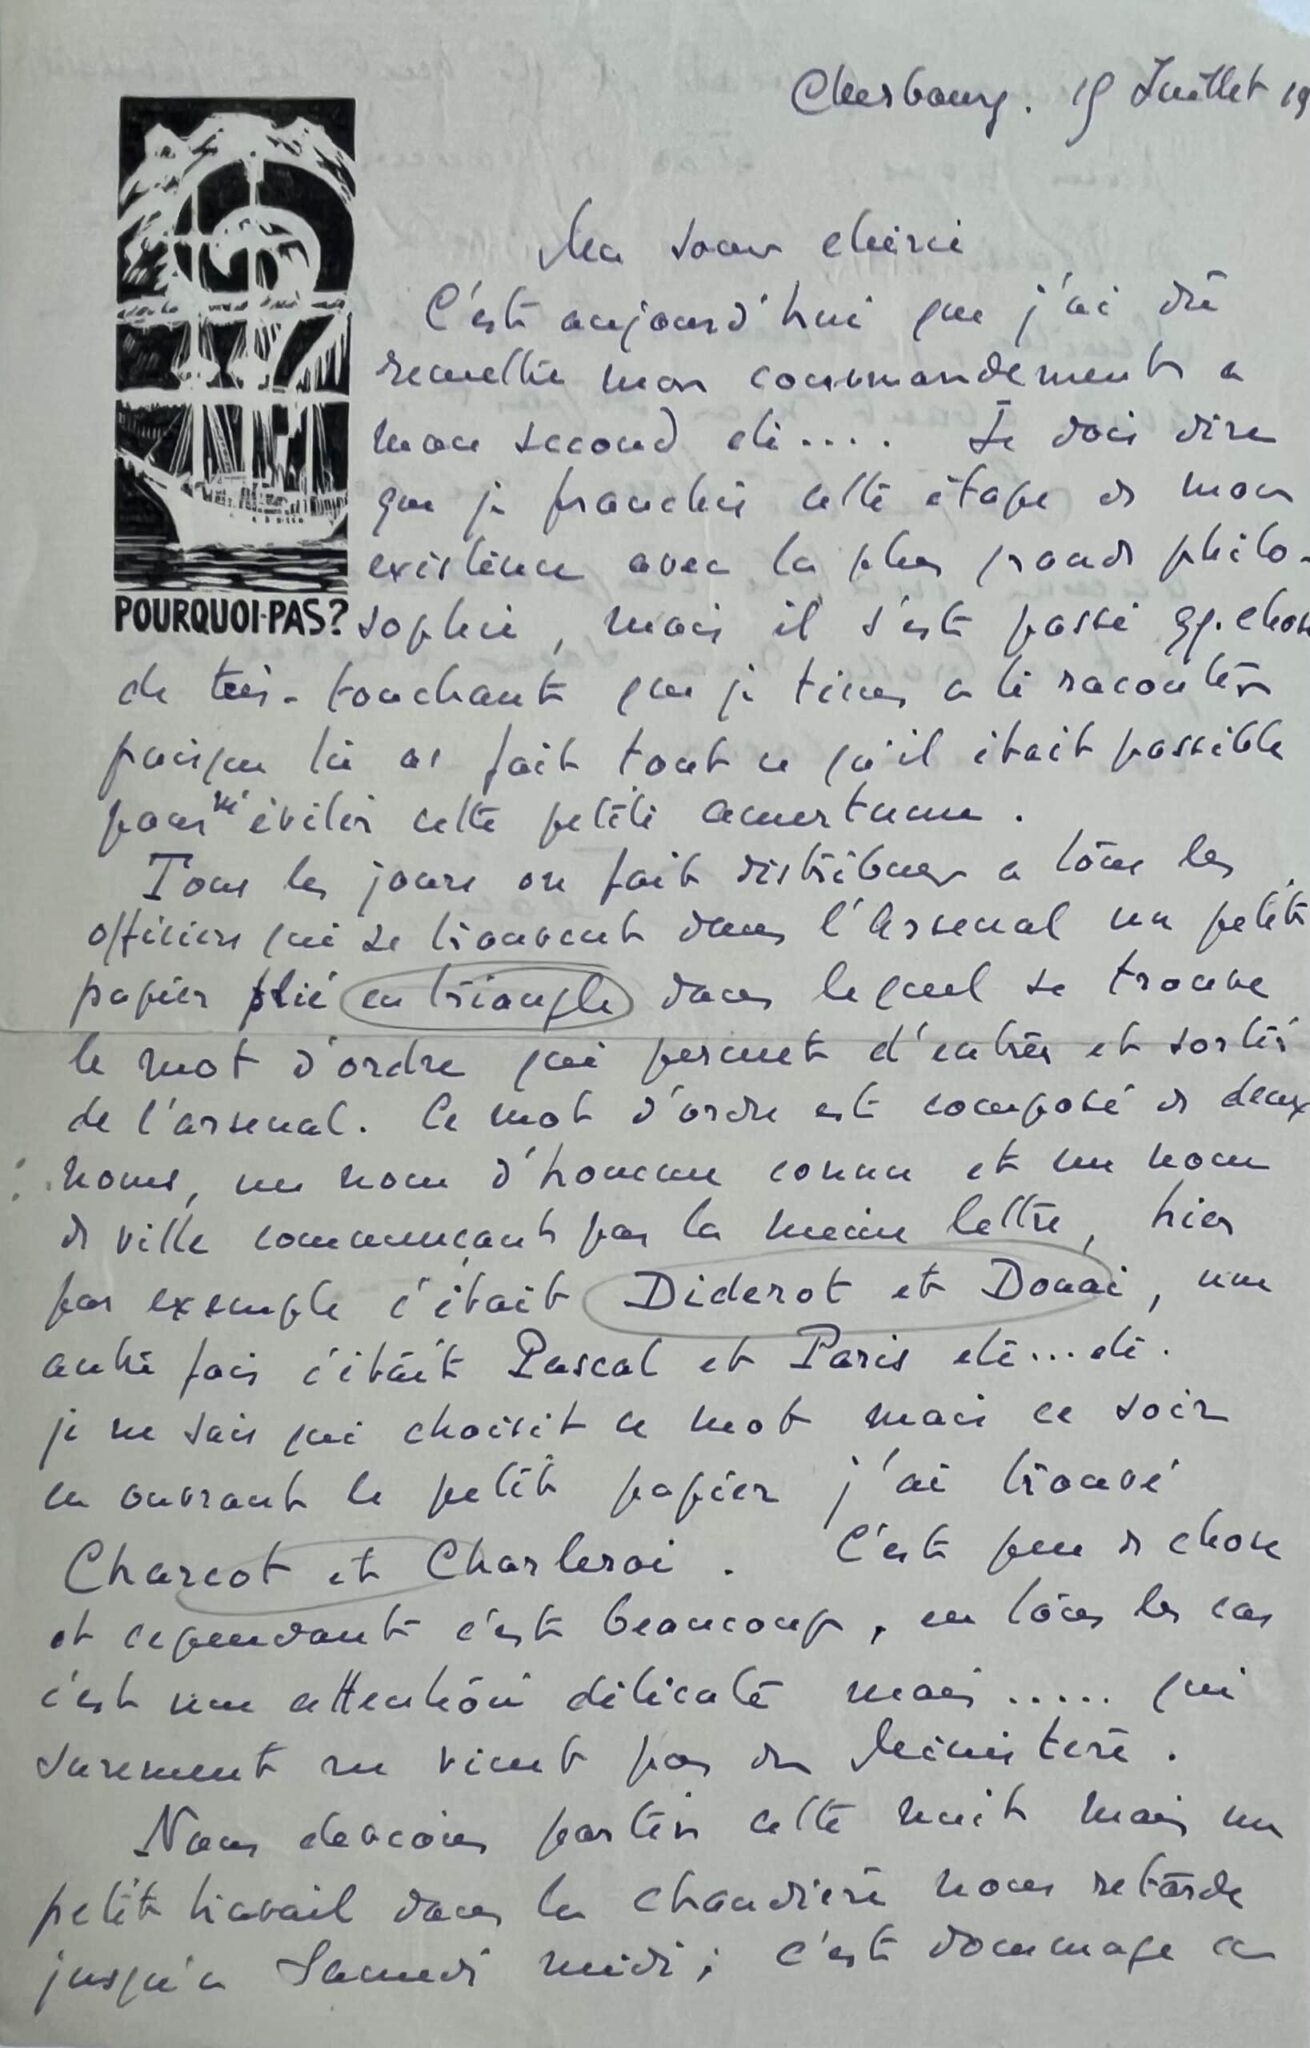 Cherbourg. 15 Juillet 19
Ma soeur chérie
C'est aujourd'hui que j'ai dû
remettre mon commandement a
mon second etc.... Je dois dire
que je franchis cette étape de mon
existence avec la plus grande philo-
POURQUOI-PAS?
sophie, mais il s'est passé qq. chose
de très-touchant que je tiens a te raconter
puisque tu as fait tout ce qu'il était possible
pour m'éviter cette petite amertume.
Tous les jours on fait distribuer a tous les
officiers qui se trouvent dans l'Arsenal un petit
papier plié en triangle dans lequel se trouve
le mot d'ordre qui permet d'entrer et sortir
de l'arsenal. Ce mot d'ordre est composé de deux
noms, un nom d'homme connu et un nom
de ville commençant par la même lettre, hier
par exemple c'était Diderot et Douai, une
autre fois c'était Pascal et Paris etc...etc.
je ne sais qui choisit ce mot mais ce soir
en ouvrant le petit papier j'ai trouvé
Charcot et Charleroi. C'est peu de chose
et cependant c'est beaucoup, en tous les cas
c'est une attention délicate mais ..... qui
surement ne vient pas du Ministère.
Nous devions partir cette nuit mais un
petit travail dans la chaudière nous retarde
jusqu'a Samedi midi; c'est dommage ca